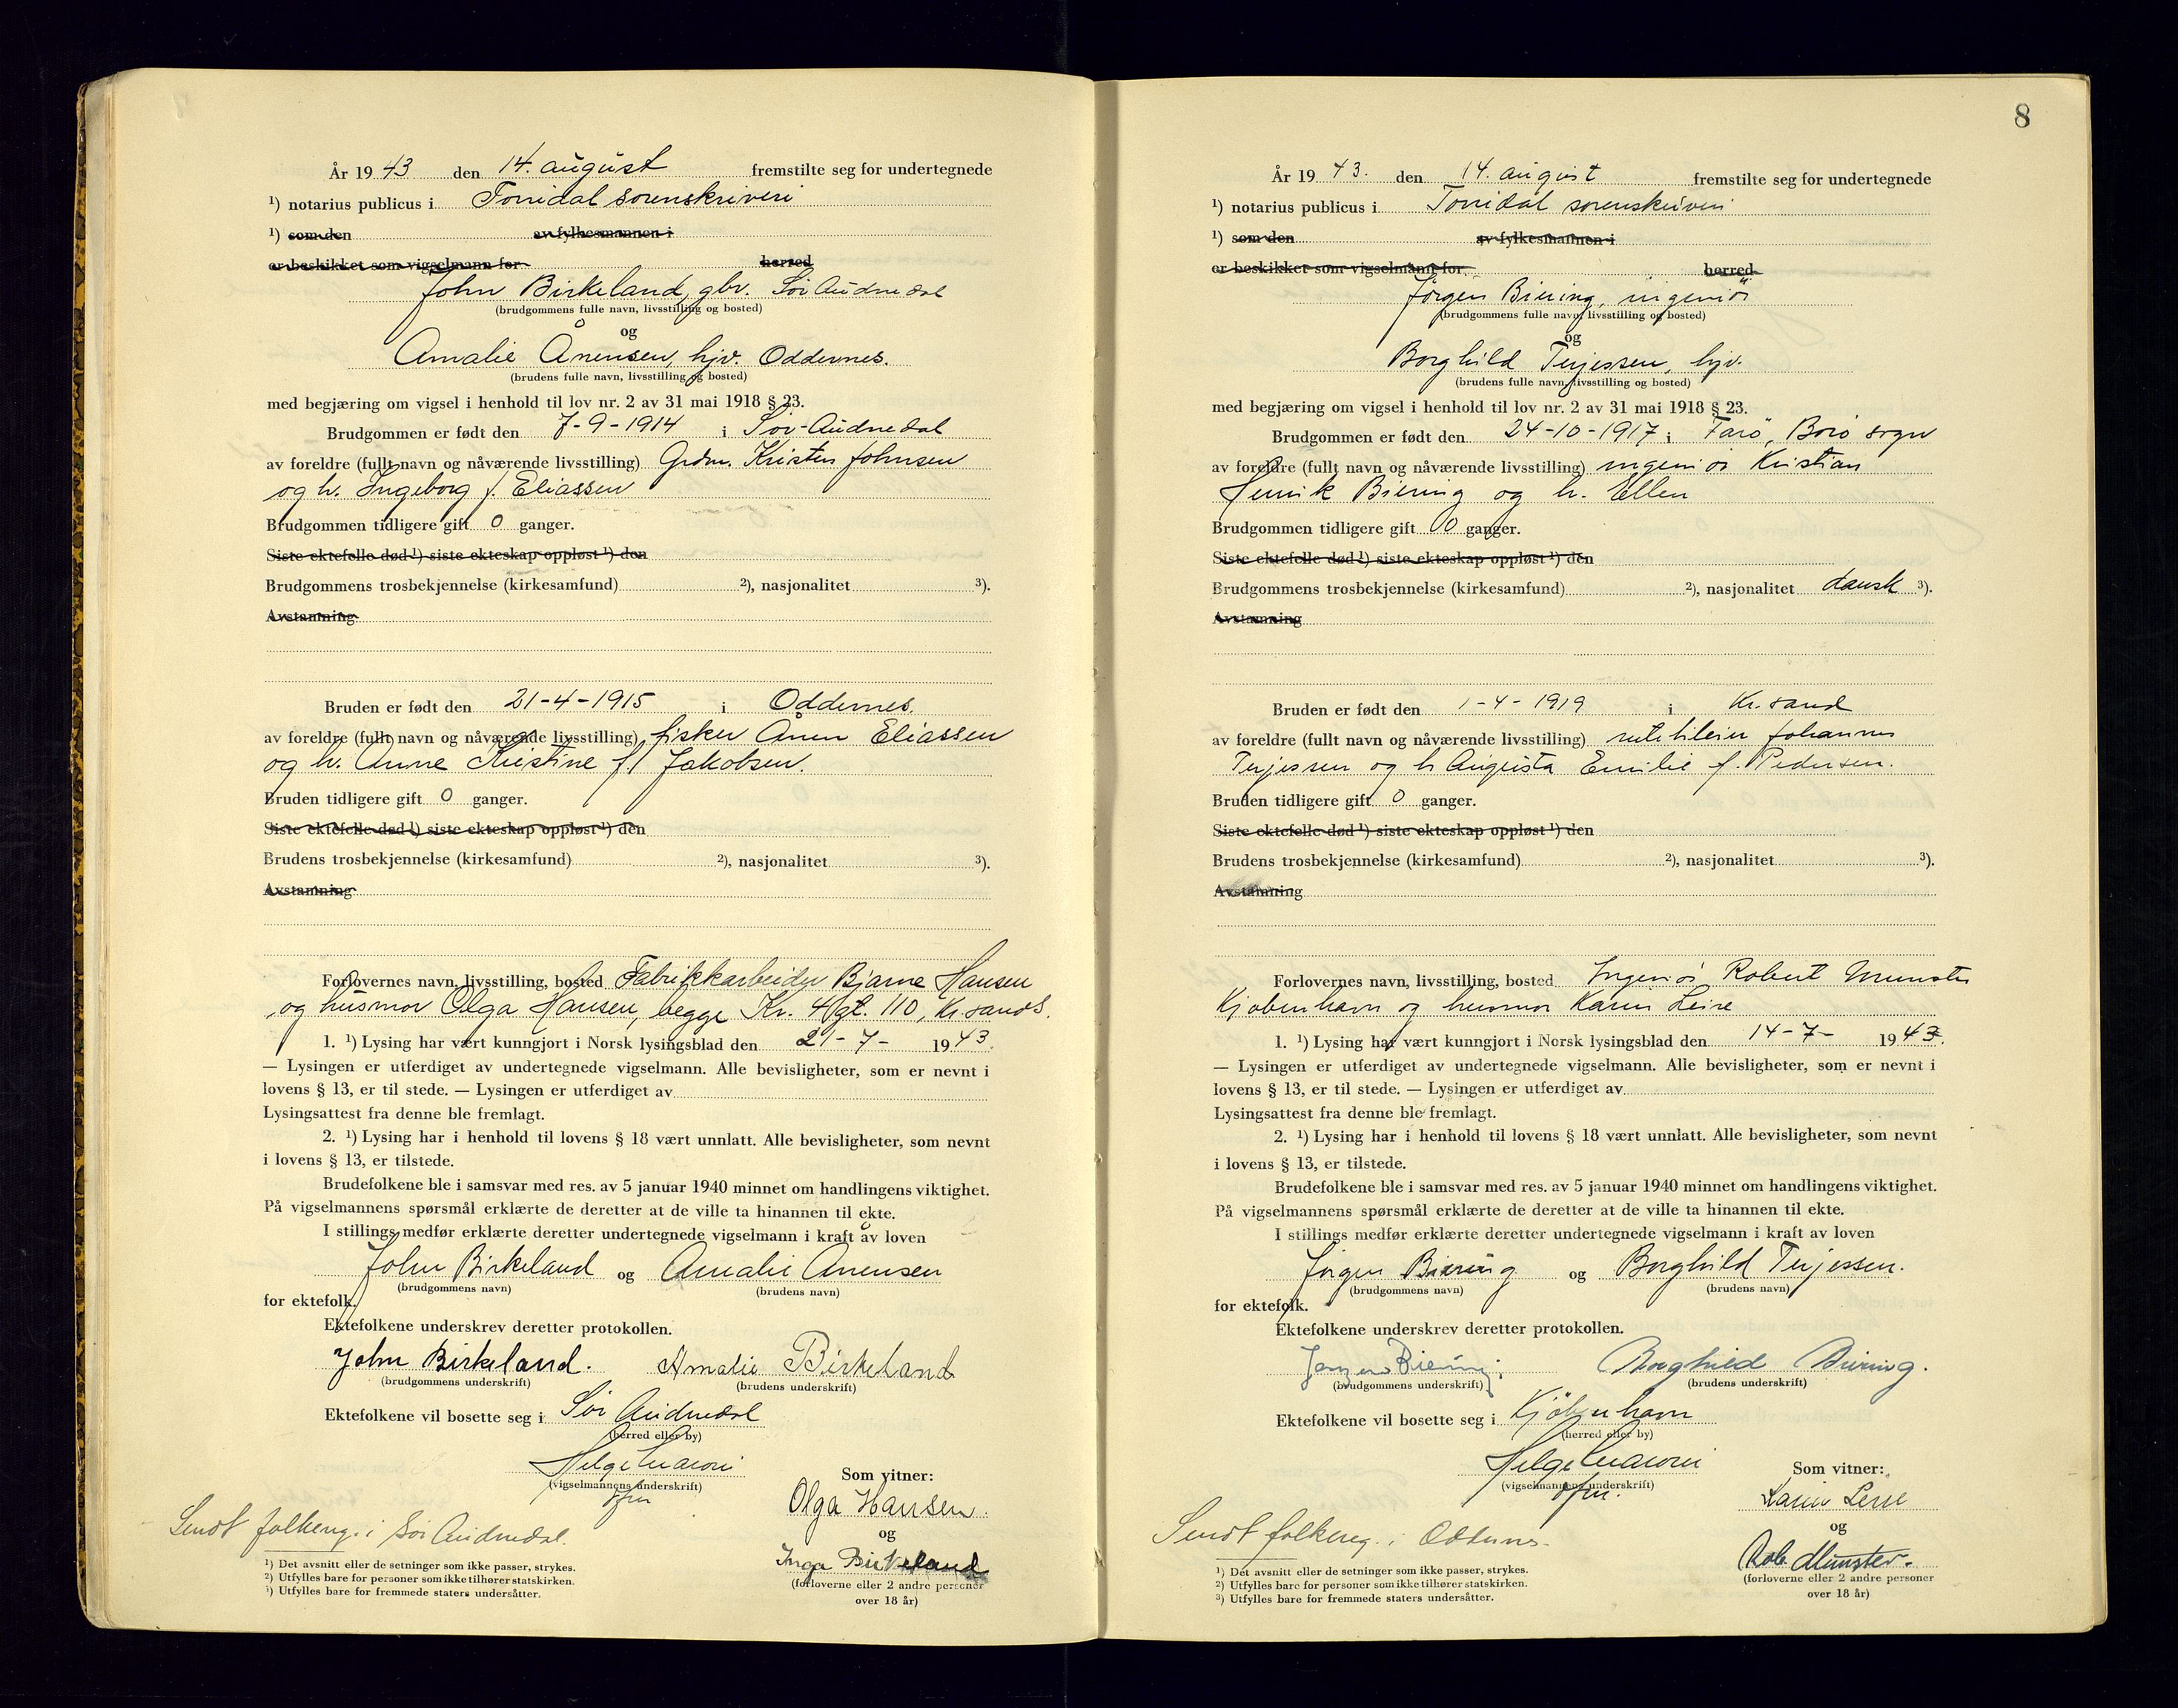 År 1943 den 14. august fremstilte seg for undertegnede
¹) notarius publicus i Torridal sorenskriveri
¹) som den av fylkesmannen i
er beskikket som vigselmann for herred
John Birkeland, gbr. Sør Audnedal
(brudgommens fulle navn, livsstilling og bosted)
og
Amalie Ånensen, hjv. Oddernes.
(brudens fulle navn, livsstilling og bosted)
med begjæring om vigsel i henhold til lov nr. 2 av 31 mai 1918 § 23.
Brudgommen er født den 7-9-1914 i Sør-Audnedal
av foreldre (fullt navn og nåværende livsstilling) Grdm. Kristen Johnsen
og h. Ingeborg f. Eliassen
Brudgommen tidligere gift 0 ganger.
Siste ektefelle død ¹) siste ekteskap oppløst ¹) den
Brudgommens trosbekjennelse (kirkesamfund) ²), nasjonalitet ³).
Avstamning
Bruden er født den 21-4-1915 i Oddernes.
av foreldre (fullt navn og nåværende livsstilling) fisker Ånen Eliassen
og h. Anne Kristine f. Jakobsen.
Bruden tidligere gift 0 ganger.
Siste ektefelle død ¹) siste ekteskap oppløst ¹) den
Brudens trosbekjennelse (kirkesamfund) ²), nasjonalitet ³).
Avstamning
Forlovernes navn, livsstilling, bosted Fabrikkarbeider Bjarne Hansen
og husmor Olga Hansen, begge Kr. 4 gt. 110, Kr.sand S.
1. ¹) Lysing har vært kunngjort i Norsk lysingsblad den 21-7- 1943.
— Lysingen er utferdiget av undertegnede vigselmann. Alle bevisligheter, som er nevnt i
lovens § 13, er til stede. — Lysingen er utferdiget av
Lysingsattest fra denne ble fremlagt.
2. ¹) Lysing har i henhold til lovens § 18 vært unnlatt. Alle bevisligheter, som nevnt
i lovens § 13, er tilstede.
Brudefolkene ble i samsvar med res. av 5 januar 1940 minnet om handlingens viktighet.
På vigselmannens spørsmål erklærte de deretter at de ville ta hinannen til ekte.
I stillings medfør erklærte deretter undertegnede vigselmann i kraft av loven
John Birkeland og Amalie Ånensen
(brudgommens navn) (brudens navn)
for ektefolk.
Ektefolkene underskrev deretter protokollen.
John Birkeland. Amalie Birkeland
(brudgommens underskrift) (brudens underskrift)
Ektefolkene vil bosette seg i Sør Audnedal
(herred eller by)
Helge
(vigselmannens underskrift)
Som vitner:
Olga Hansen
og
Inga Birkeland
(forloverne eller 2 andre personer
over 18 år)
Sendt folkereg. i Sør Audnedal.
¹) Det avsnitt eller de setninger som ikke passer, strykes.
²) Utfylles bare for personer som ikke tilhører statskirken.
³) Utfylles bare for fremmede staters undersåtter.
8
År 1943. den 14. august fremstilte seg for undertegnede
¹) notarius publicus i Torridal sorenskriveri
¹) som den av fylkesmannen i
er beskikket som vigselmann for herred
Jörgen Biering, ingeniör
(brudgommens fulle navn, livsstilling og bosted)
og
Borghild Terjessen, hjv.
(brudens fulle navn, livsstilling og bosted)
med begjæring om vigsel i henhold til lov nr. 2 av 31 mai 1918 § 23.
Brudgommen er født den 24-10-1917 i Farö, sogn
av foreldre (fullt navn og nåværende livsstilling) ingeniör Kristian
Henrik Biering og h. Ellen
Brudgommen tidligere gift 0 ganger.
Siste ektefelle død ¹) siste ekteskap oppløst ¹) den
Brudgommens trosbekjennelse (kirkesamfund) ²), nasjonalitet dansk ³).
Avstamning
Bruden er født den 1-4-1919 i Kr.sand
av foreldre (fullt navn og nåværende livsstilling) rutebileier Johannes
Terjessen og h. Augusta Emilie f. Pedersen.
Bruden tidligere gift 0 ganger.
Siste ektefelle død ¹) siste ekteskap oppløst ¹) den
Brudens trosbekjennelse (kirkesamfund) ²), nasjonalitet ³).
Avstamning
Forlovernes navn, livsstilling, bosted Ingeniör Robert Munster
Kjøbenhavn og husmor Karin
1. ¹) Lysing har vært kunngjort i Norsk lysingsblad den 14-7- 1943.
— Lysingen er utferdiget av undertegnede vigselmann. Alle bevisligheter, som er nevnt i
lovens § 13, er til stede. — Lysingen er utferdiget av
Lysingsattest fra denne ble fremlagt.
2. ¹) Lysing har i henhold til lovens § 18 vært unnlatt. Alle bevisligheter, som nevnt
i lovens § 13, er tilstede.
Brudefolkene ble i samsvar med res. av 5 januar 1940 minnet om handlingens viktighet.
På vigselmannens spørsmål erklærte de deretter at de ville ta hinannen til ekte.
I stillings medfør erklærte deretter undertegnede vigselmann i kraft av loven
Jörgen Biering og Borghild Terjessen.
(brudgommens navn) (brudens navn)
for ektefolk.
Ektefolkene underskrev deretter protokollen.
Jørgen Biering. Borghild Biering.
(brudgommens underskrift) (brudens underskrift)
Ektefolkene vil bosette seg i Kjöbenhavn
(herred eller by)
Helge
(vigselmannens underskrift)
Som vitner:
Karin
og
Rob. Munster.
(forloverne eller 2 andre personer
over 18 år)
Sendt folkereg. i Oddernes.
¹) Det avsnitt eller de setninger som ikke passer, strykes.
²) Utfylles bare for personer som ikke tilhører statskirken.
³) Utfylles bare for fremmede staters undersåtter.